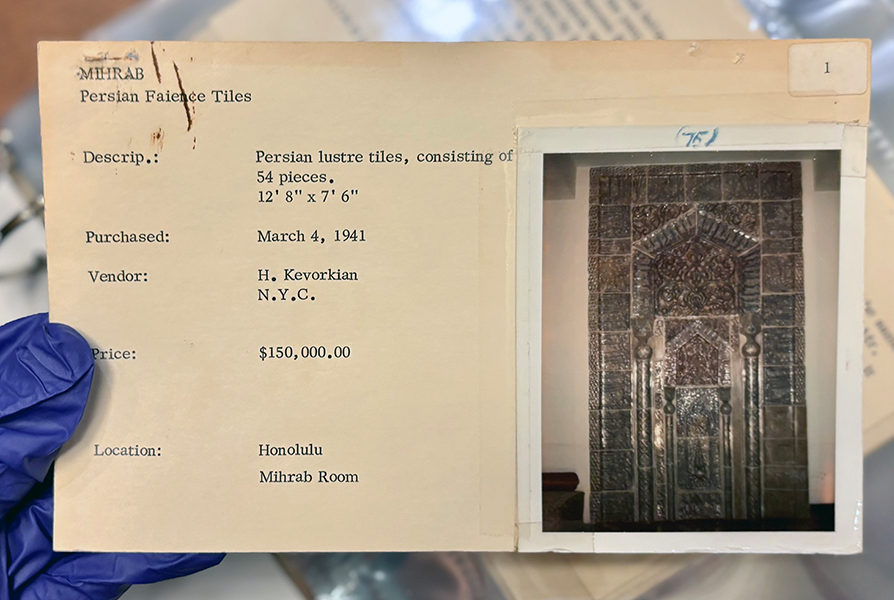 MIHRAB
Persian Faience Tiles
1
Descrip.: Persian lustre tiles, consisting of
54 pieces.
12' 8" x 7' 6"
Purchased: March 4, 1941
Vendor: H. Kevorkian
N.Y.C.
Price: $150,000.00
Location: Honolulu
Mihrab Room